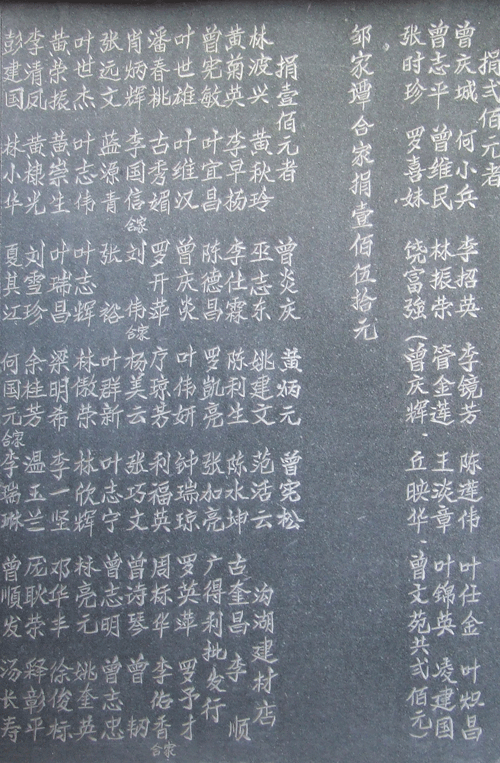 捐弍佰元者
曾庆城 何小兵 李招英 李镜芳 陈莲伟 叶任金 叶炽昌
曾志平 曾维民 林振荣 管金莲 王淡章 叶锦英 凌建国
张时珍 罗喜妹 饶富强 (曾庆辉、丘映华、曾文苑共弍佰元)
邹家谭合家捐壹佰伍拾元
捐壹佰元者 曾炎庆 黄炳元 曾宪松
林波兴 黄秋玲 巫志东 姚建文 范活云 沟湖建材店
黄菊英 李早扬 李仕霖 陈利生 陈水坤 古奎昌 李顺
曾宪敏 叶宜昌 陈德昌 罗凯亮 张加亮 广得利批发行
叶世雄 叶维汉 曾庆炎 叶伟妍 钟瑞琼 罗英萍 罗予才
潘春桃 古秀媚 罗开萍 琼芳 利福英 周标华 李佑香合家
肖炳辉 李国信合家 刘伟合家 杨美云 张巧文 曾诗琴 曾韧
张远文 蓝源青 张裕 叶群新 叶志宁 曾志明 曾志忠
叶世杰 叶志伟 叶志辉 林傲荣 林欣辉 林亮元 姚奎英
黄荣振 黄崇生 叶瑞昌 梁明希 李一坚 邓华丰 徐俊标
李清凤 黄棣光 刘雪珍 余桂芳 温玉兰 庞耿荣 释彰平
彭建国 林小华 夏其江 何国元合家 李瑞琳 曾顺发 汤长寿